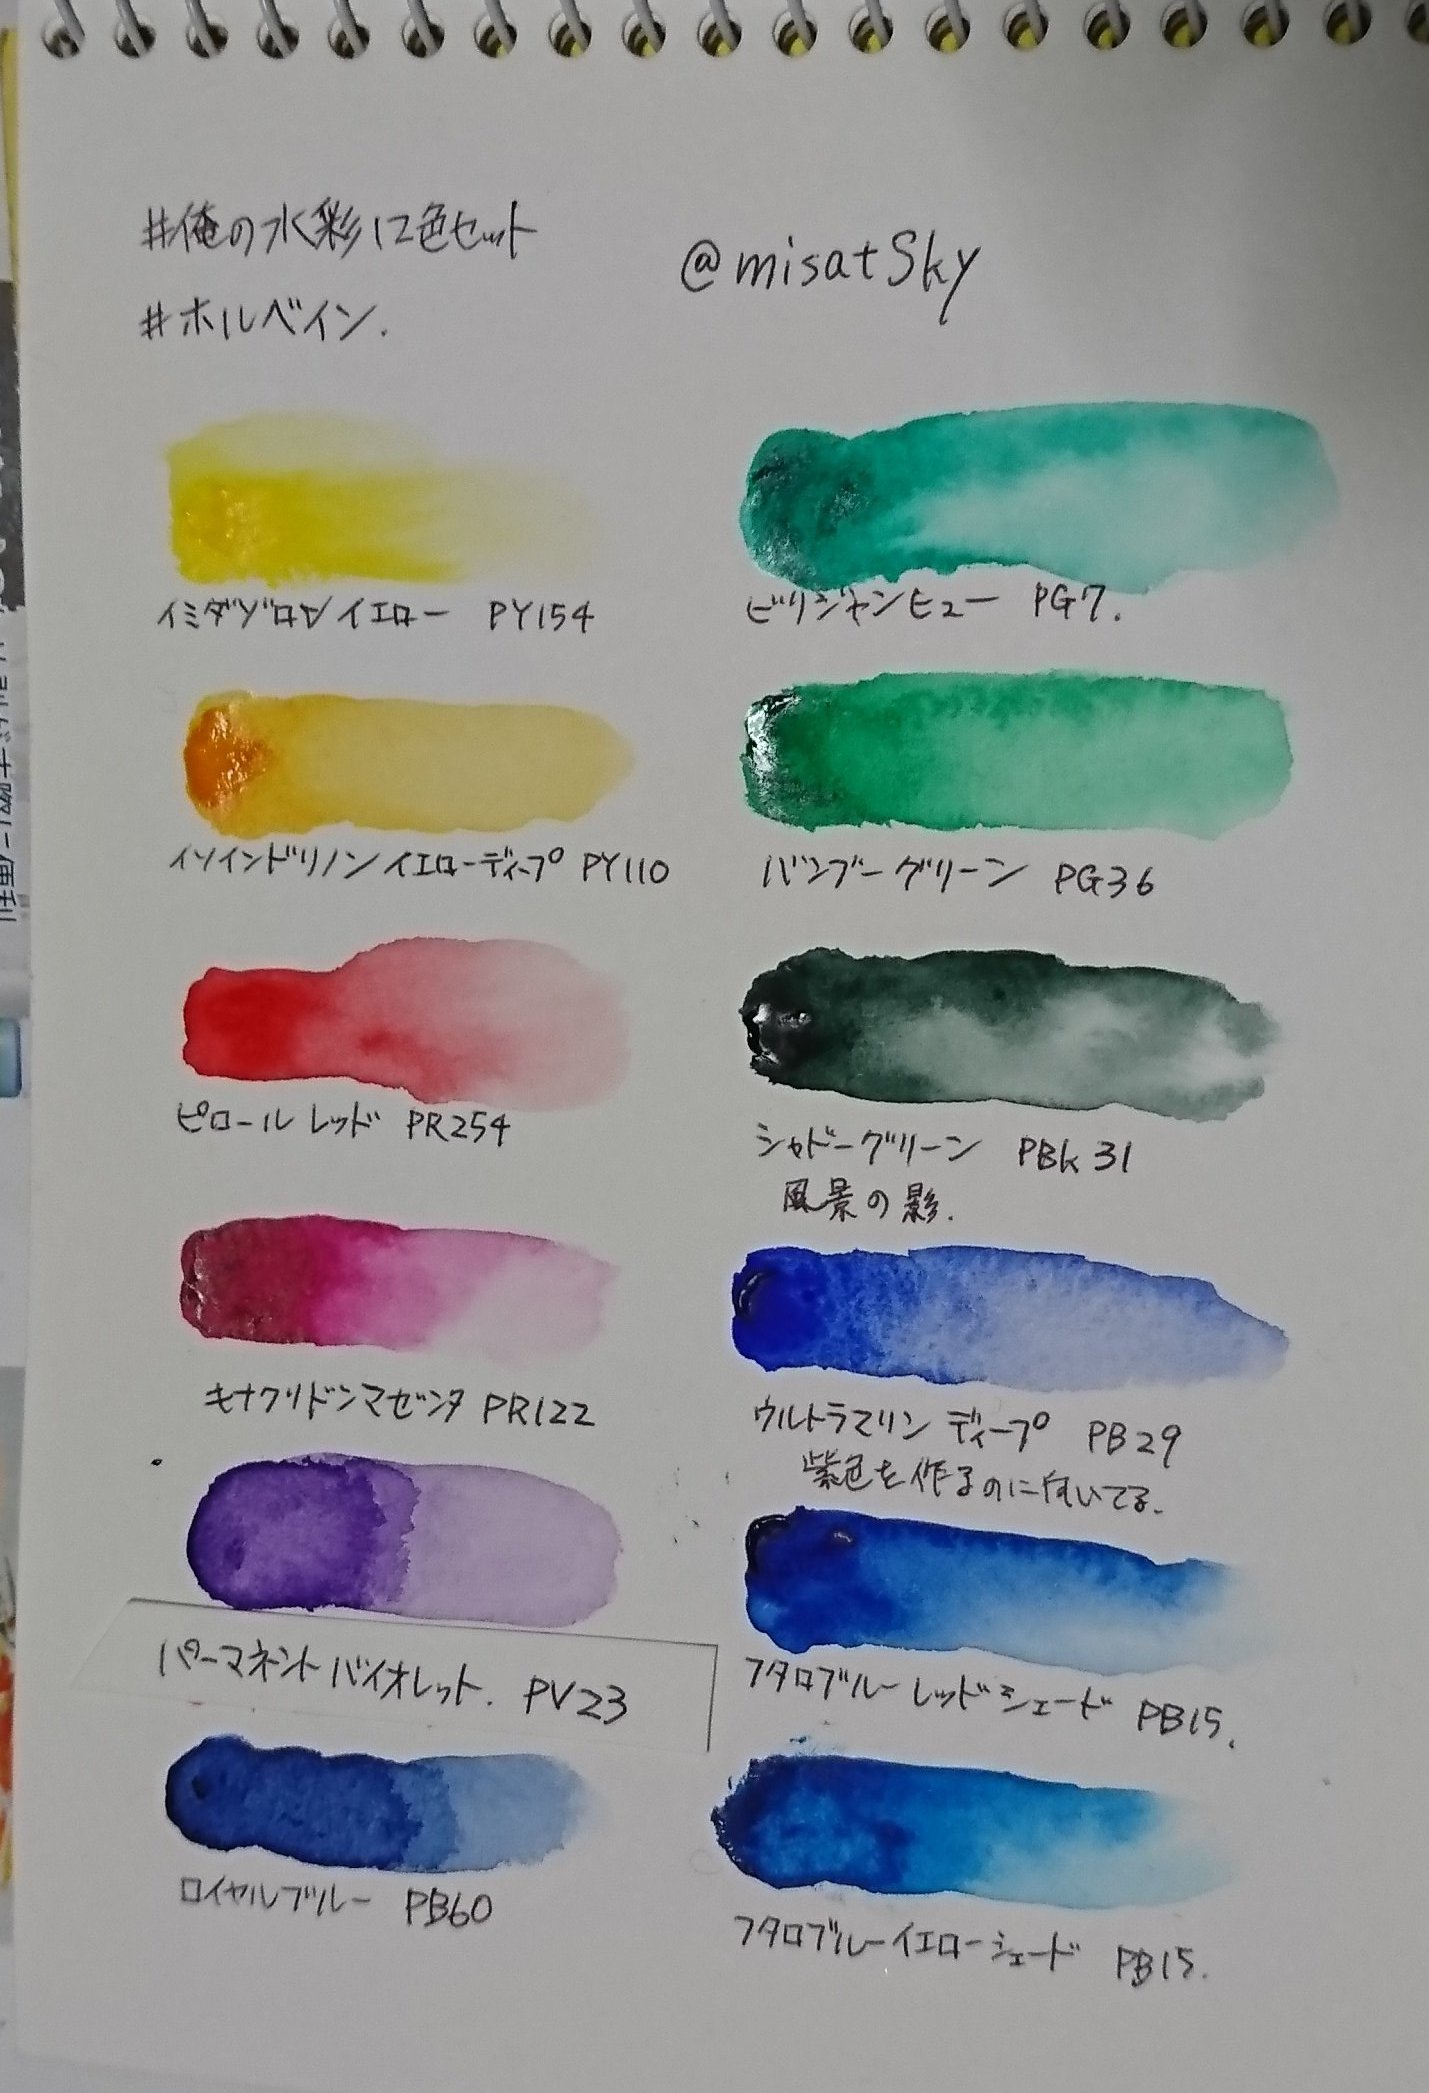 #俺の水彩12色セット
#ホルベイン.
@misatSky
イミダゾロンイエロー PY154
イソインドリノンイエローディープ PY110
ピロールレッド PR254
キナクリドンマゼンタ PR122
パーマネントバイオレット. PV23
ロイヤルブルー PB60
ビリジャンヒュー PG7.
バンブーグリーン PG36
シャドーグリーン PBk 31
風景の影.
ウルトラマリン ディープ PB29
紫色を作るのに向いてる.
フタロブルー レッドシェード PB15.
フタロブルーイエローシェード PB15.